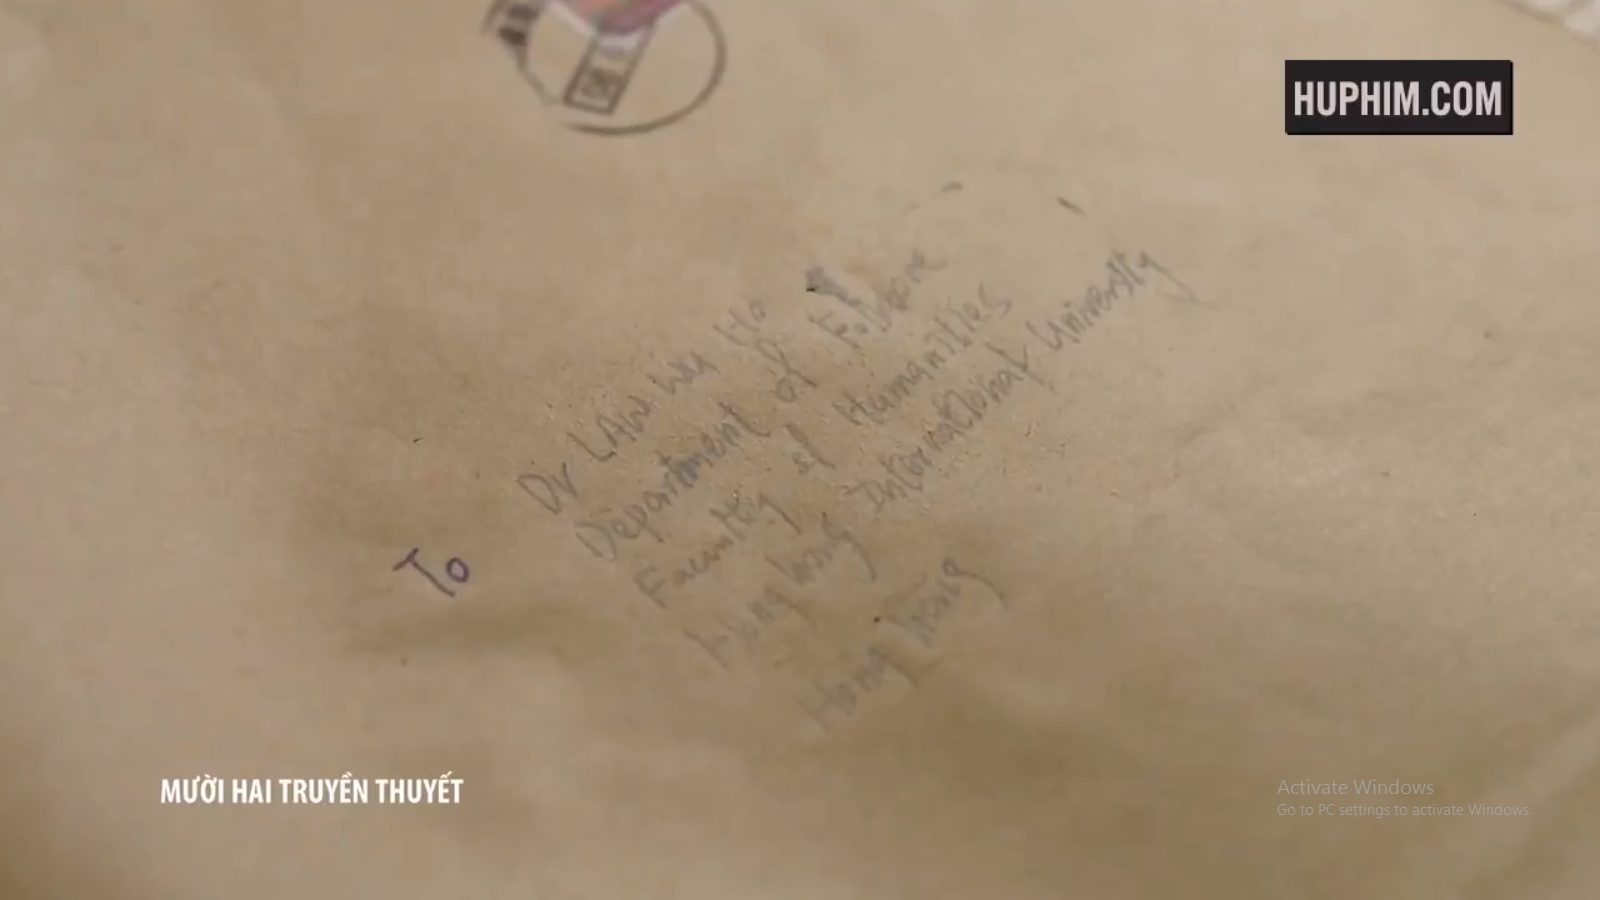 HUPHIM.COM
To
Dr LAW Wu Ho
Department of Folklore
Faculty of Humanities
Hong kong International University
Hong kong
MƯỜI HAI TRUYỀN THUYẾT
Activate Windows
Go to PC settings to activate Windows.